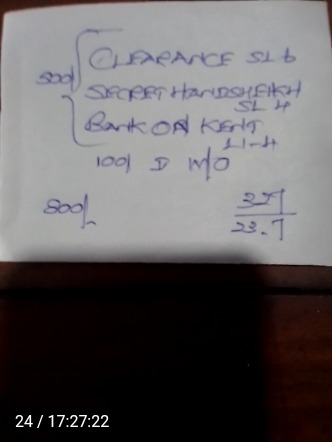 500/
CLEARANCE SL 6
SECRET HANDSHEIKH
SL 4
BANK ON KENT
L1-4
100/ D W/O
800/-
23.7
24 / 17:27:22